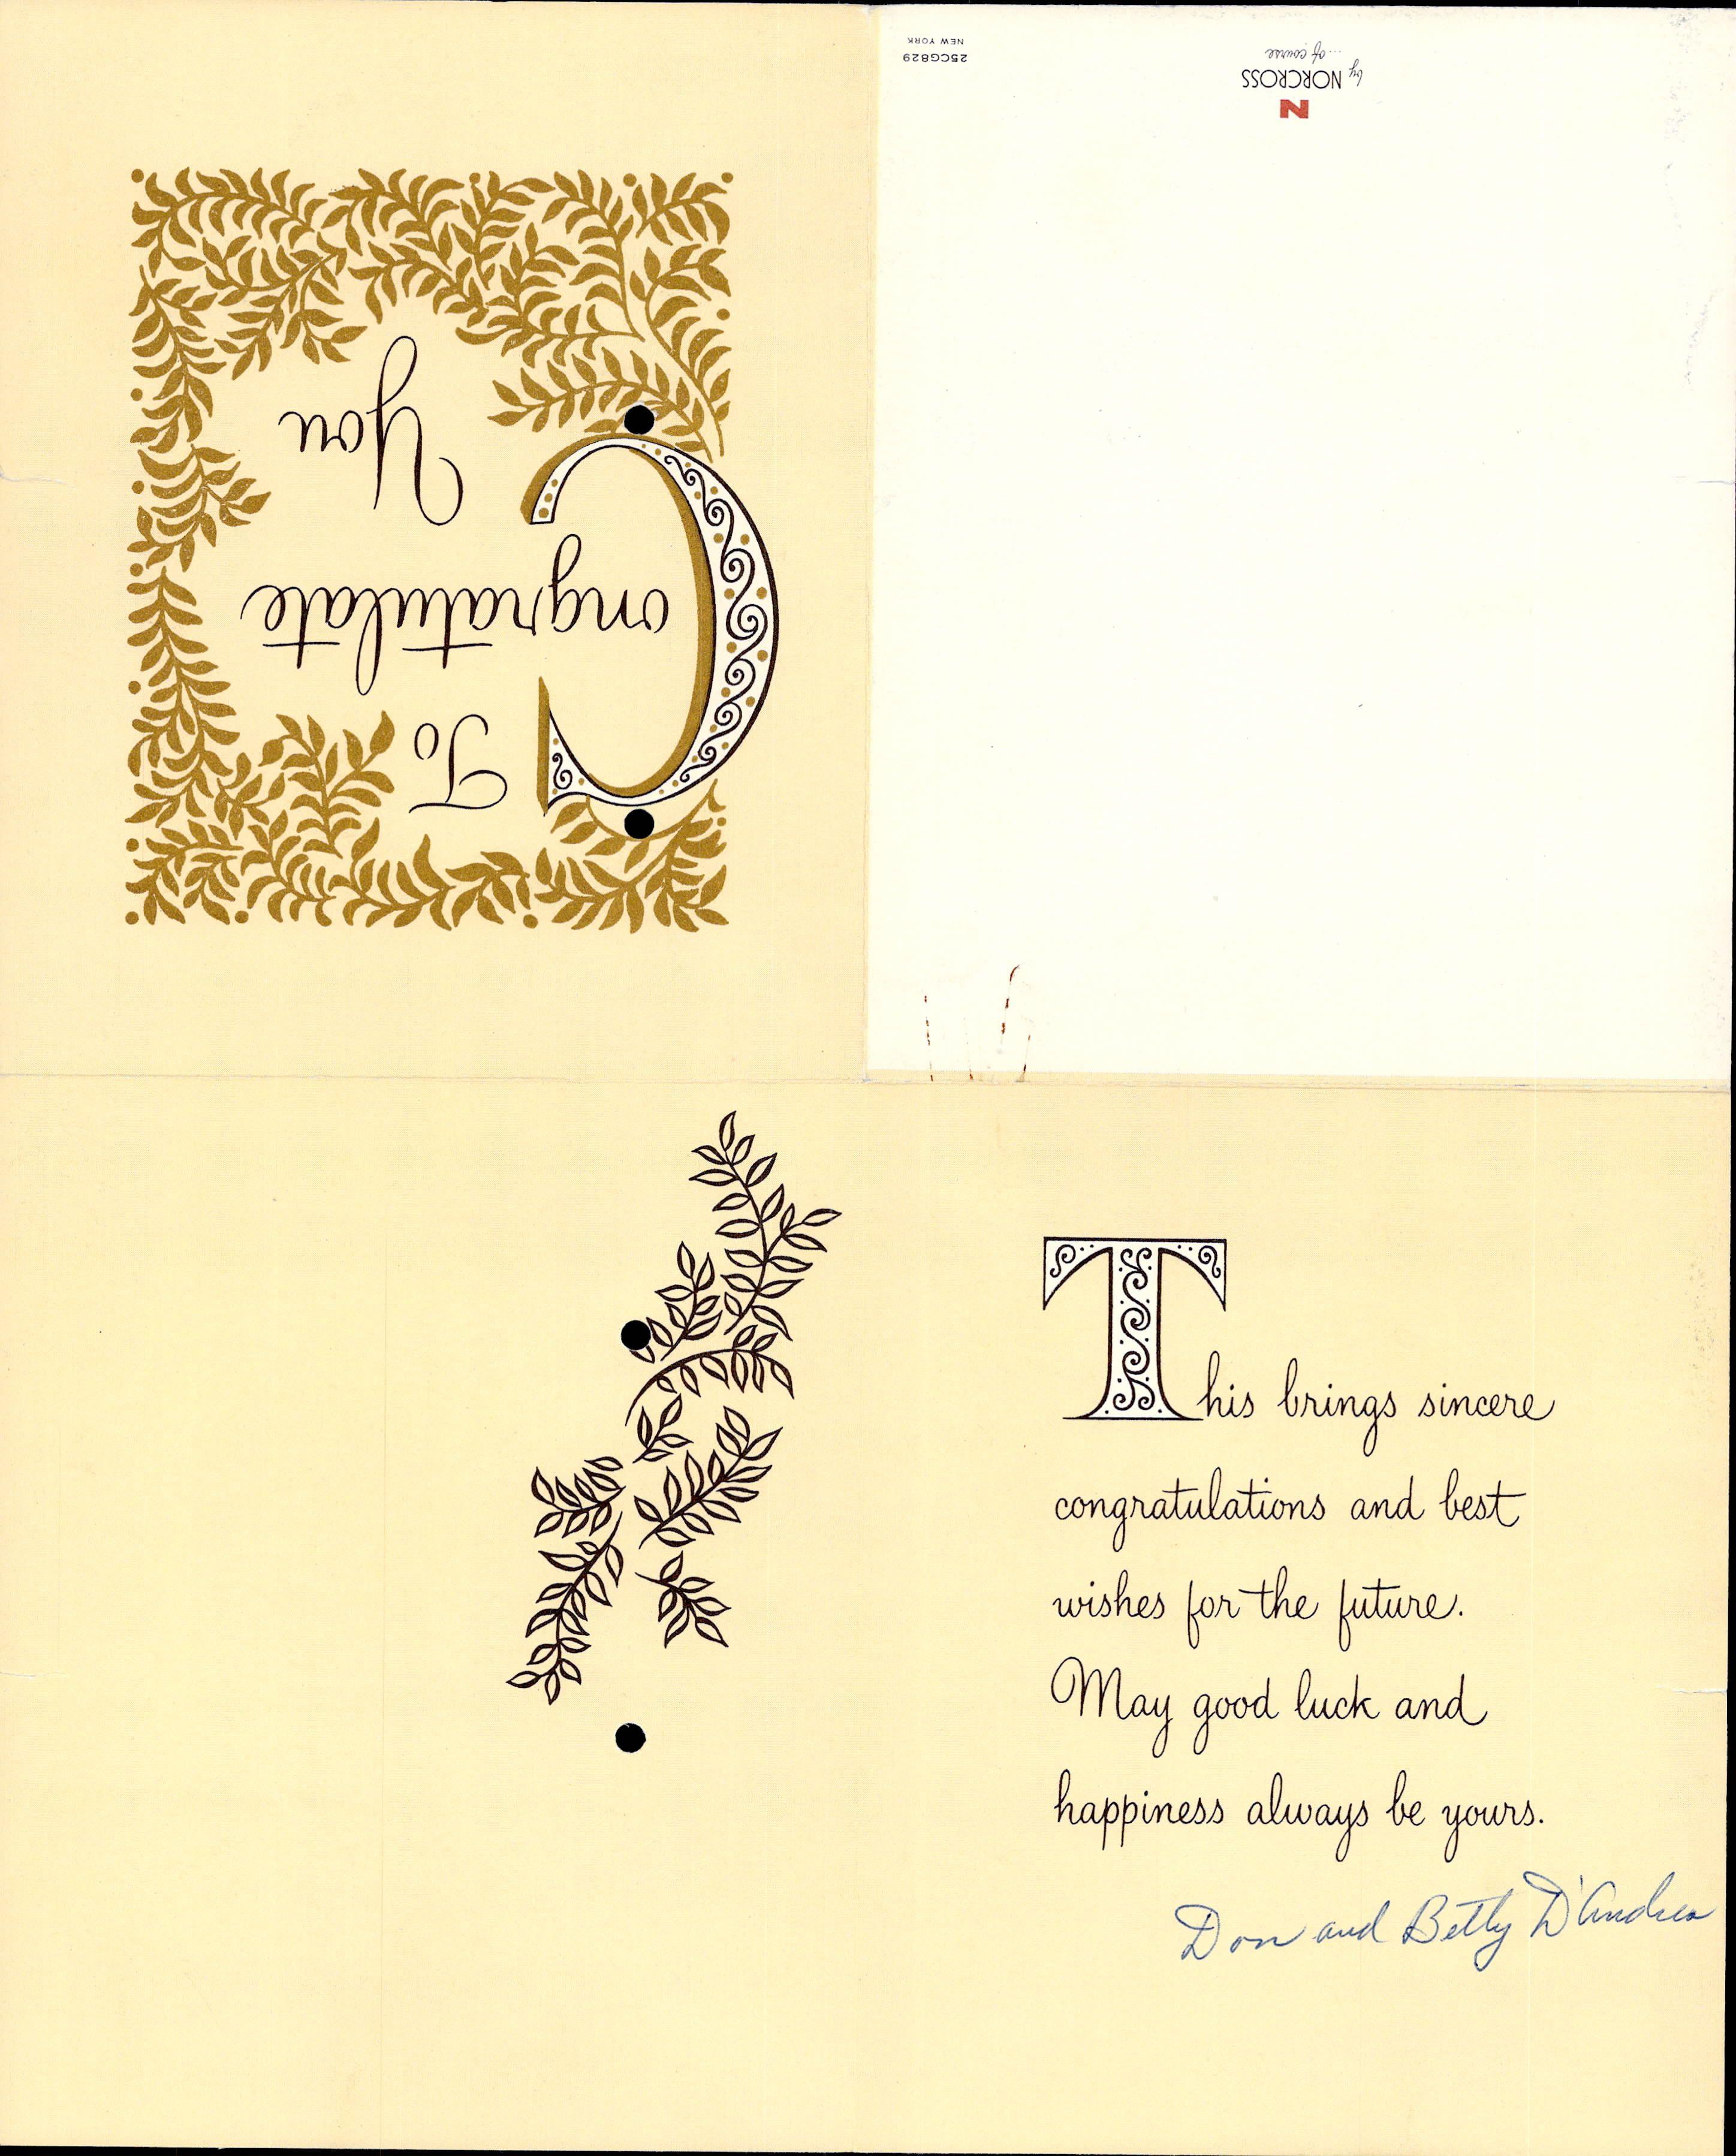 To
Congratulate
You
25CG829
NEW YORK
N
by NORCROSS
...of course
This brings sincere
congratulations and best
wishes for the future.
May good luck and
happiness always be yours.
Don and Betty D'Andrea